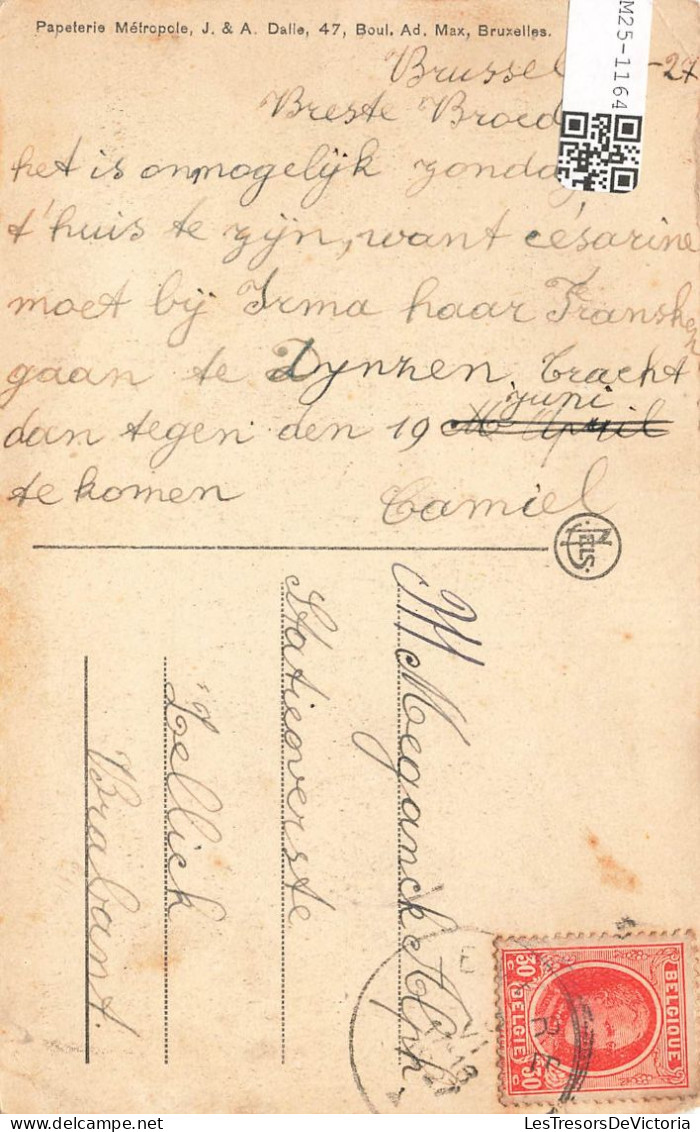 Papeterie Métropole, J. & A. Dalle, 47, Boul. Ad. Max, Bruxelles.
M25-1164
Brussel -27
Breste Broed
het is onmogelijk zondag
t'huis te zijn, want césarine
moet bij Irma haar Fransken
gaan te Dynzen tracht
juni
dan tegen den 19 April
te komen
Camiel
NELS
M Meganck Alph.
Statieoverste
Zellick
Brabant.
BELGIQUE
BELGIE
30c 30c
LesTresorsDeVictoria.com